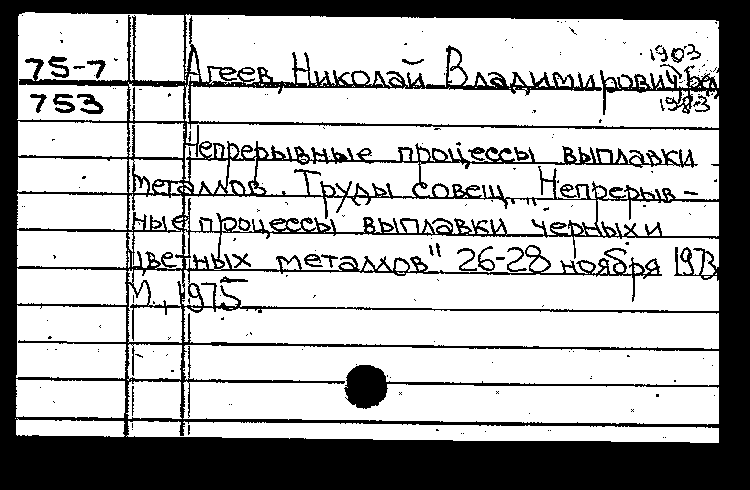 1903
75-7 Агеев, Николай Владимирович, ред
753 1983
Непрерывные процессы выплавки
металлов. Труды совещ. „Непрерыв-
ные процессы выплавки черных и
цветных металлов" 26-28 ноября 1973
М., 1975.